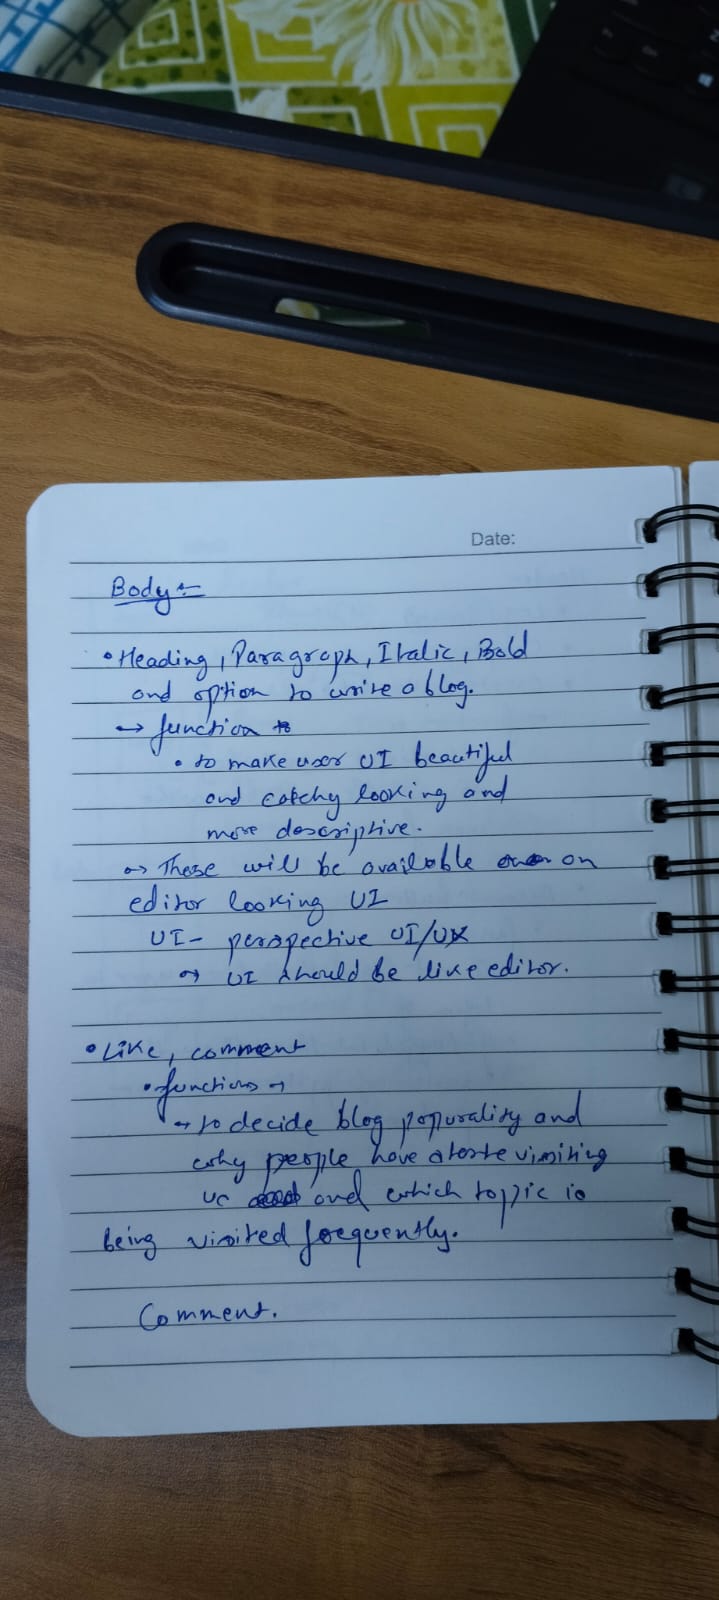 Date:
Body :-
• Heading, Paragraph, Italic, Bold
and option to write a blog.
→ function
• to make user UI beautiful
and catchy looking and
more descriptive.
→ These will be available on
editor looking UI
UI - perspective UI/UX
→ UI should be like editor.
• Like, comment
• functions →
→ to decide blog popurality and
why people have visiting
us and which toppic is
being visited frequently.
Comment.